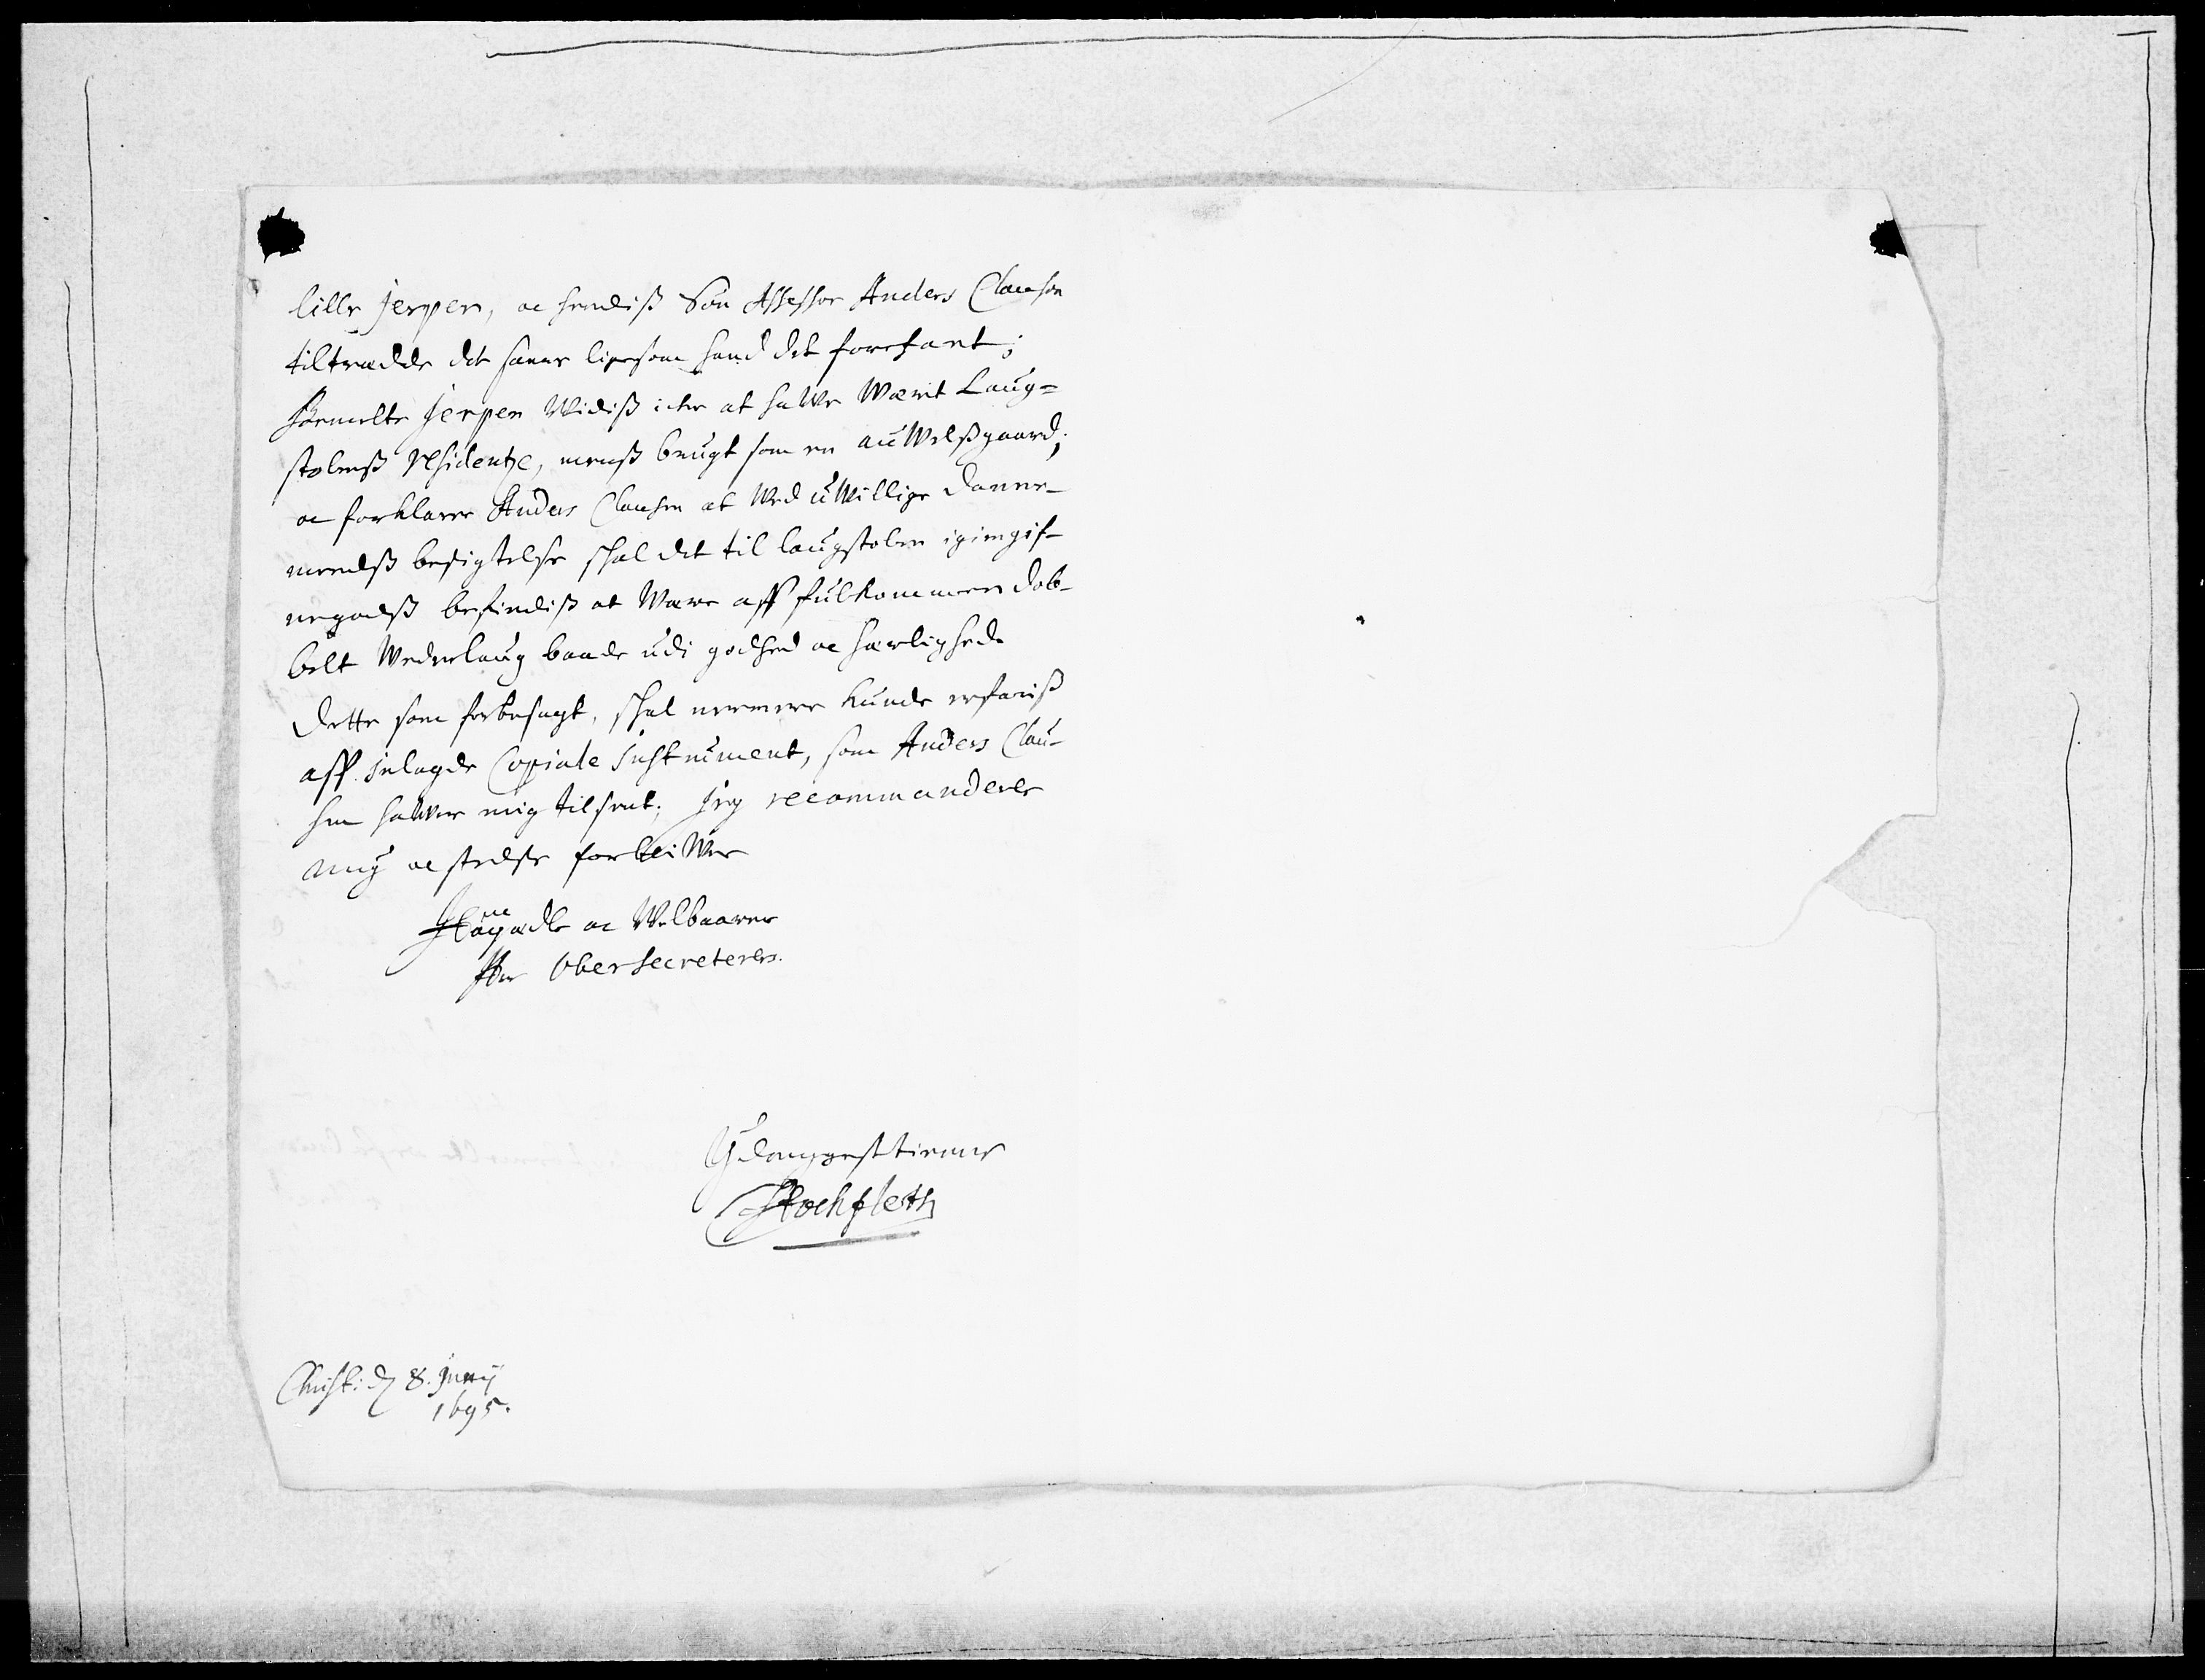 lille Jerpen, oc hendiß Søn Assessor Anders Clausen
tiltrædde det samme ligesom hand det forefant;
Bemelte Jerpen Widiß icke at haWe Wærit Laug-
stolenß Residentze, menß brugt som en auWelßgaard;
oc forklarer Anders Clausen at Wed uWillige Danne-
mendß besigtelse skal det til laugstolen igiengif-
negodß befindiß at Wære aff fulkommen dob-
belt Wederlaug baade udi godhed oc herlighed.
Dette som forbesagt, skal nermere kunde erfariß
aff inlagde Copiale Instrument, som Anders Clau-
sen haWer mig tilsent; Jeg recommanderer
mig oc stedse forbliWer
Høyædle oc Welbaarne
Hr Obersecreterers.
Hochfleth
Christi: d 8. Junij
1695.